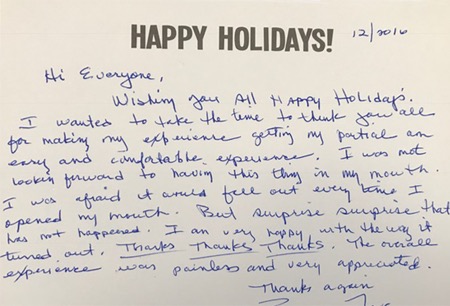 HAPPY HOLIDAYS!
12/2016
Hi Everyone,
Wishing you All Happy Holidays.
I wanted to take the time to thank you all
for making my experience getting my partial an
easy and comfortable experience. I was not
lookin forward to having this thing in my mouth.
I was afraid it would fell out every time I
opened my mouth. But surprise surprise that
has not happened. I am very happy with the way it
turned out. Thanks Thanks Thanks. The overall
experience was painless and very appreciated.
Thanks again